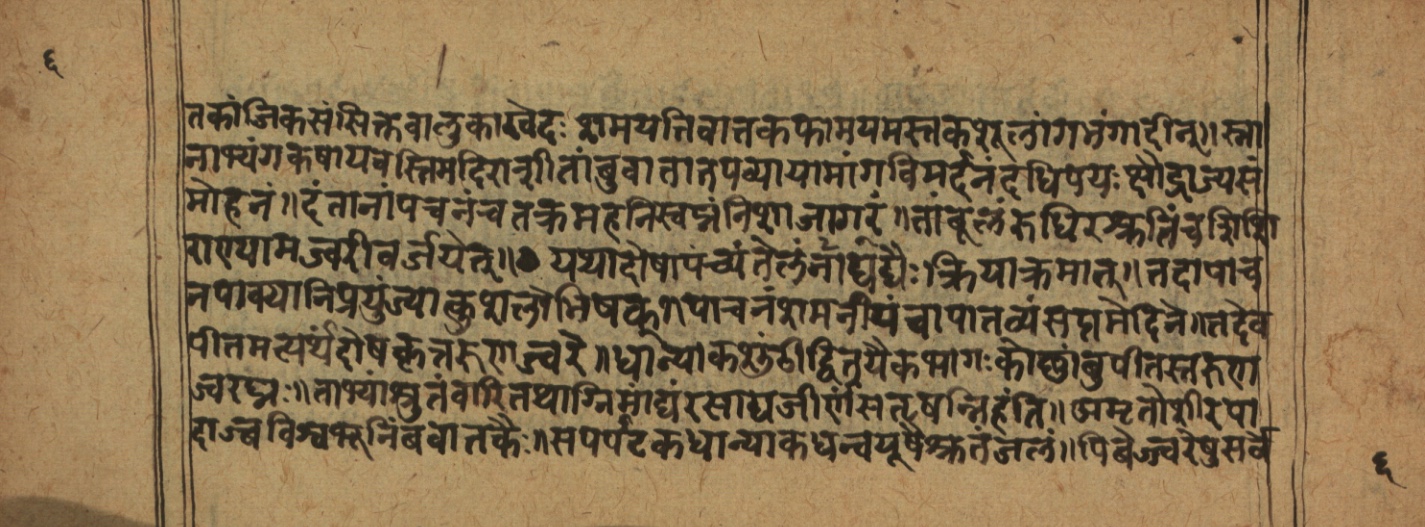 ६
तकांजिकसंसिक्तवालुकास्वेदः शमयत्तिवातकफामयमस्तकशूलांगभंगादीन्॥ स्ना
नाभ्यंगकषायवस्तिमदिरान्शीतांबुवातातपव्यायामांगविमर्दनंदधिपयःक्षौद्राज्यसं
मोहनं॥ दंतानांपचनंचतक्रमहनिस्वप्नंनिशाजागरं॥ तांबूलंरुधिरस्रुतिंचशिशि
राण्यामज्वरीवर्जयेत्॥ यथादोषापंच्यंतेलंर्नाद्यैःक्रियाक्रमात्॥ तदापाच
नपाक्यानिप्रयुंज्यात्कुशलोभिषक्॥ पाचनंशमनीयंचापातव्यंसप्तमेदिने॥ तदेव
पीतमत्यर्थंदोषकृतरुणज्वरे॥ धान्याकशुंठीद्वितयैकभागःकोष्णांबुपीतस्तरुण
ज्वरघ्नः॥ ताभ्यांस्नुतंवारितथाग्निमांद्यंरसाद्यजीर्णंसितृषन्निहंति॥ अमृतोशीरपा
दाज्वविश्वभूनिंबवातकैः॥ सपर्पटकधान्याकधन्वयूषैस्रुतंजलं॥ पिबेज्ज्वरेषुसर्वे
६